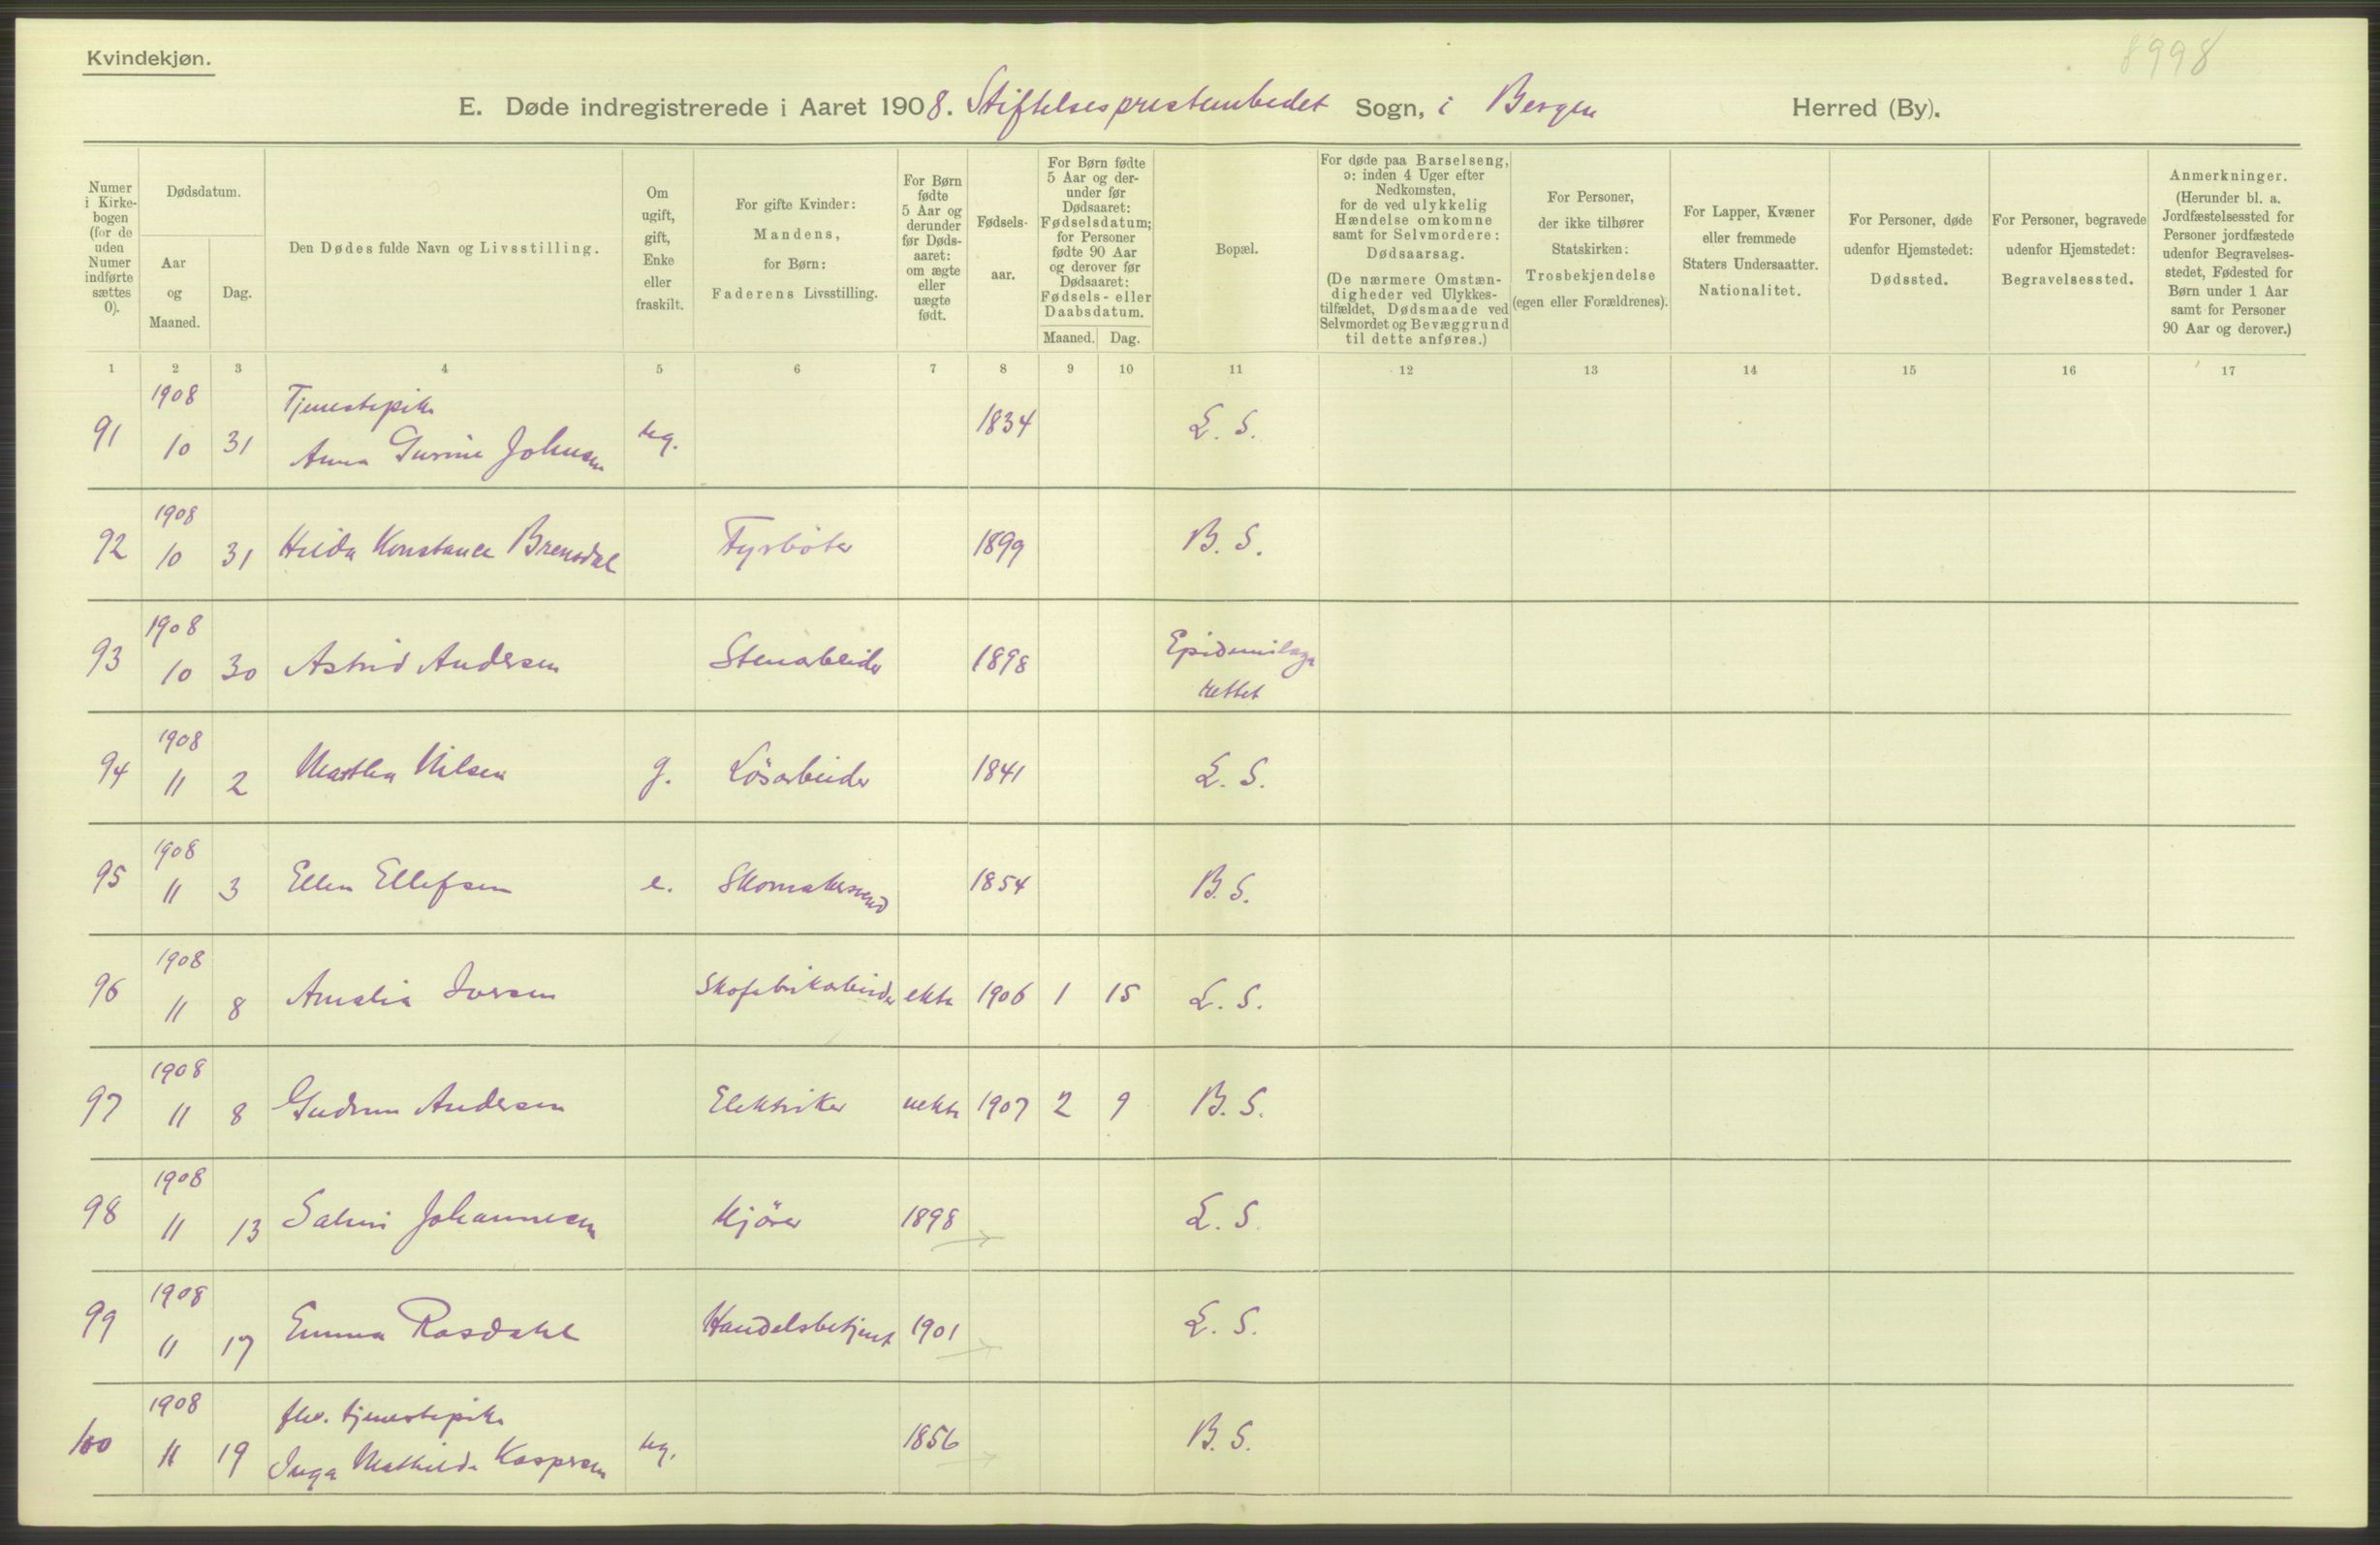 Kvindekjøn.
8998
E. Døde indregistrerede i Aaret 1908. Stiftelsesprestembedet Sogn, i Bergen Herred (By).
Numer i Kirkebogen (for de uden Numer indførte sættes 0).
Dødsdatum.
Aar og Maaned.
Dag.
Den Dødes fulde Navn og Livsstilling.
Om ugift, gift, Enke eller fraskilt.
For gifte Kvinder: Mandens, for Børn: Faderens Livsstilling.
For Børn fødte 5 Aar og derunder før Dødsaaret: om ægte eller uægte født.
Fødselsaar.
For Børn fødte 5 Aar og derunder før Dødsaaret: Fødselsdatum; for Personer fødte 90 Aar og derover før Dødsaaret: Fødsels- eller Daabsdatum.
Maaned. Dag.
Bopæl.
For døde paa Barselseng, ɔ: inden 4 Uger efter Nedkomsten, for de ved ulykkelig Hændelse omkomne samt for Selvmordere: Dødsaarsag.
(De nærmere Omstændigheder ved Ulykkestilfældet, Dødsmaade ved Selvmordet og Bevæggrund til dette anføres.)
For Personer, der ikke tilhører Statskirken: Trosbekjendelse (egen eller Forældrenes).
For Lapper, Kvæner eller fremmede Staters Undersaatter. Nationalitet.
For Personer, døde udenfor Hjemstedet: Dødssted.
For Personer, begravede udenfor Hjemstedet: Begravelsessted.
Anmerkninger.
(Herunder bl. a. Jordfæstelsessted for Personer jordfæstede udenfor Begravelsesstedet, Fødested for Børn under 1 Aar samt for Personer 90 Aar og derover.)
1 2 3 4 5 6 7 8 9 10 11 12 13 14 15 16 17
1908 Tjenestepike
91 10 31 Anna Gurine Johnsen ug. 1834 L. S.
1908
92 10 31 Hilda Konstance Brensdal Fyrböter 1899 B. S.
1908
93 10 30 Astrid Andersen Stenarbeider 1898 Epidemilaza
rettet
1908
94 11 2 Martha Nilsen g. Lösarbeider 1841 L. S.
1908
95 11 3 Ellen Ellefsen e. Skomakersvend 1854 B. S.
1908
96 11 8 Amalia Iversen Skofabrikarbeider ekte 1906 1 15 L. S.
1908
97 11 8 Gudrun Andersen Elektriker uekte 1907 2 9 B. S.
1908
98 11 13 Salmi Johannesen Kjörer 1898 → L. S.
1908
99 11 17 Emma Rosdahl Handelsbetjent 1901 → L. S.
1908 fhv. tjenestepike
100 11 19 Inga Mathilde Kaspersen ug. 1856 → B. S.